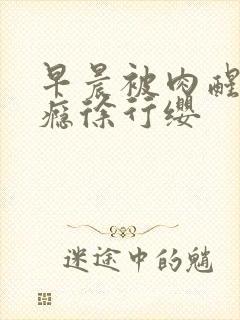 早晨被肉醒
瘾徐行缨
迷途中的魈